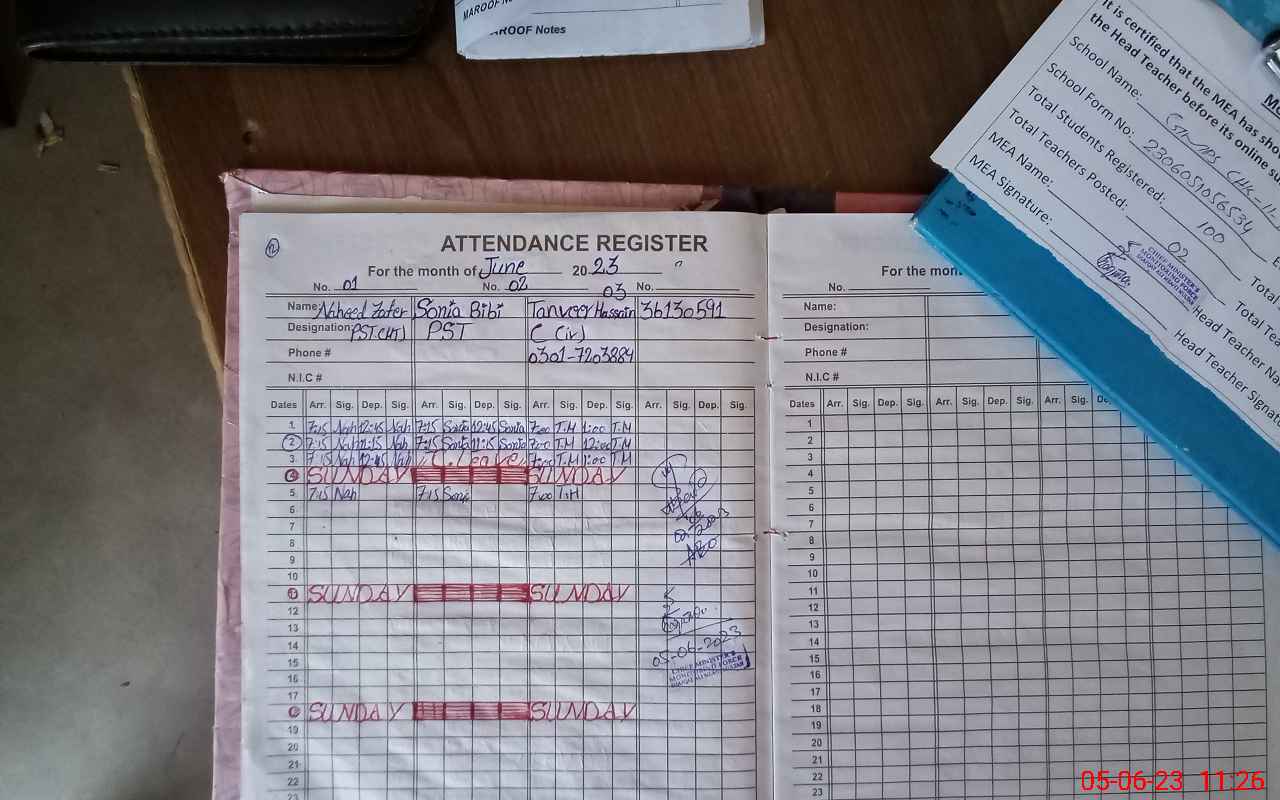 MAROOF Notes
It is certified that the MEA has sho
the Head Teacher before its online su
School Name:
School Form No: 2306051056534
Total Students Registered: 100
Total Teachers Posted: 02
MEA Name:
MEA Signature:
CHIEF MINISTER'S
MONITORING FORCE
Head Teacher Na
Head Teacher Signat
12
ATTENDANCE REGISTER
For the month of June 2023
No. 01 No. 02 03 No.
Name: Naheed Zafer Sonia Bibi Tanveer Hassain 36130591
Designation: PST(HT) PST C (iv)
Phone # 0301-7203884
N.I.C #
Dates Arr. Sig. Dep. Sig. Arr. Sig. Dep. Sig. Arr. Sig. Dep. Sig. Arr. Sig. Dep. Sig.
1 7:15 Nah 12:45 Nah 7:15 Sonia 12:45 Sonia 7:00 T.M 1:00 T.M
2 7:15 Nah 11:15 Nah 7:15 Sonia 11:15 Sonia 7:00 T.M 12:00 T.M
3 7:15 Nah 12:45 Nah C. Leave 7:00 T.M 1:00 T.M
4 SUNDAY SUNDAY
5 7:15 Nah 7:15 Sonia 7:00 T.M
6
7
8
9
10
11 SUNDAY SUNDAY
12
13
14
15
16
17
18 SUNDAY SUNDAY
19
20
21
22
23
05-06-2023
CHIEF MINISTER'S
MONITORING FORCE
For the mon
No.
Name:
Designation:
Phone #
N.I.C #
Dates Arr. Sig. Dep. Sig. Arr. Sig. Dep. Sig. Arr. Sig. De
1
2
3
4
5
6
7
8
9
10
11
12
13
14
15
16
17
18
19
20
21
22
23
05-06-23 11:26